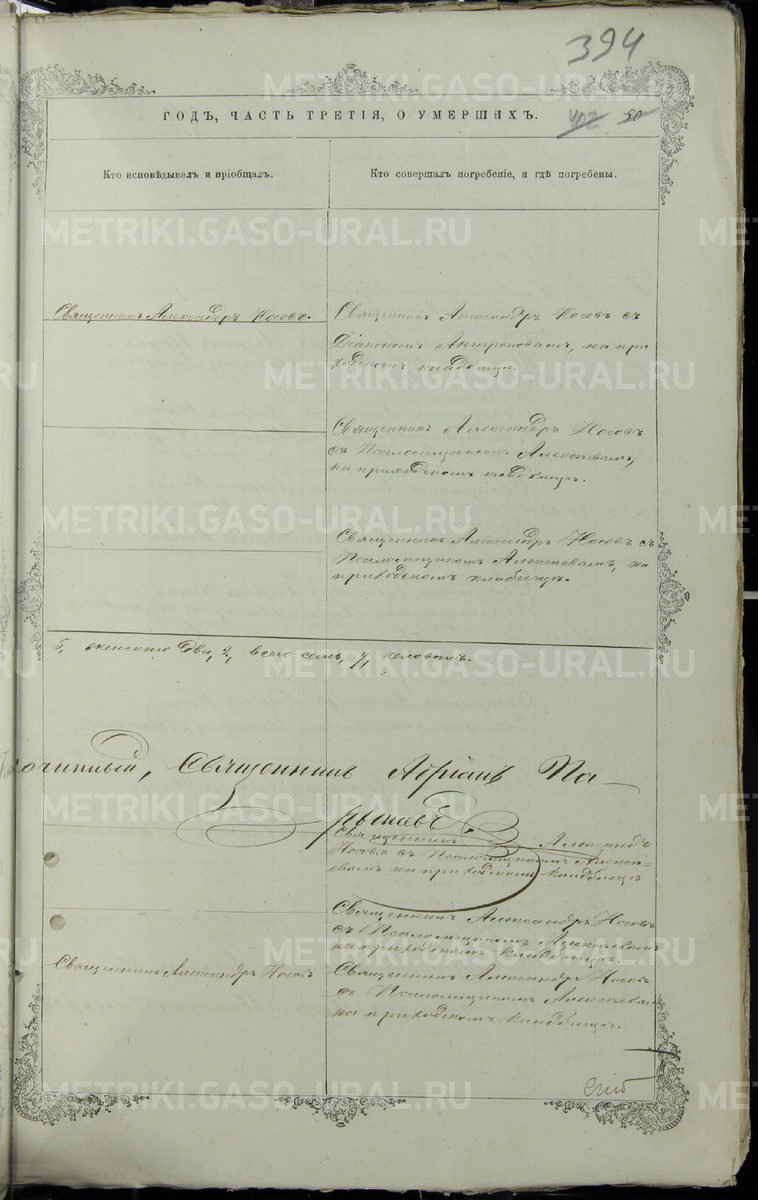 394
ГОДЪ, ЧАСТЬ ТРЕТІЯ, О УМЕРШИХЪ.
402 50
Кто исповѣдывалъ и пріобщалъ.
Кто совершалъ погребеніе, и гдѣ погребены.
Священникъ Александръ Носовъ.
Священникъ Александръ Носовъ съ
Діакономъ Антроповымъ, на при
ходскомъ кладбищѣ.
Священникъ Александръ Носовъ
съ Псаломщикомъ Алексѣевымъ,
на приходскомъ кладбищѣ.
Священникъ Александръ Носовъ съ
Псаломщикомъ Алексѣевымъ, на
приходскомъ кладбищѣ.
5, женскаго два, 2, всего семь, 7, человѣкъ.
очинный, Священникъ Адріанъ
Священникъ Александръ
Носовъ съ Псаломщикомъ Алексѣ
евымъ на приходскомъ кладбищѣ
Священникъ Александръ Носовъ
съ Псаломщикомъ Алексѣевымъ
на приходскомъ кладбищѣ.
Священникъ Александръ Носовъ
Священникъ Александръ Носовъ
съ Псаломщикомъ Алексѣевымъ
на приходскомъ кладбищѣ.
METRIKI.GASO-URAL.RU